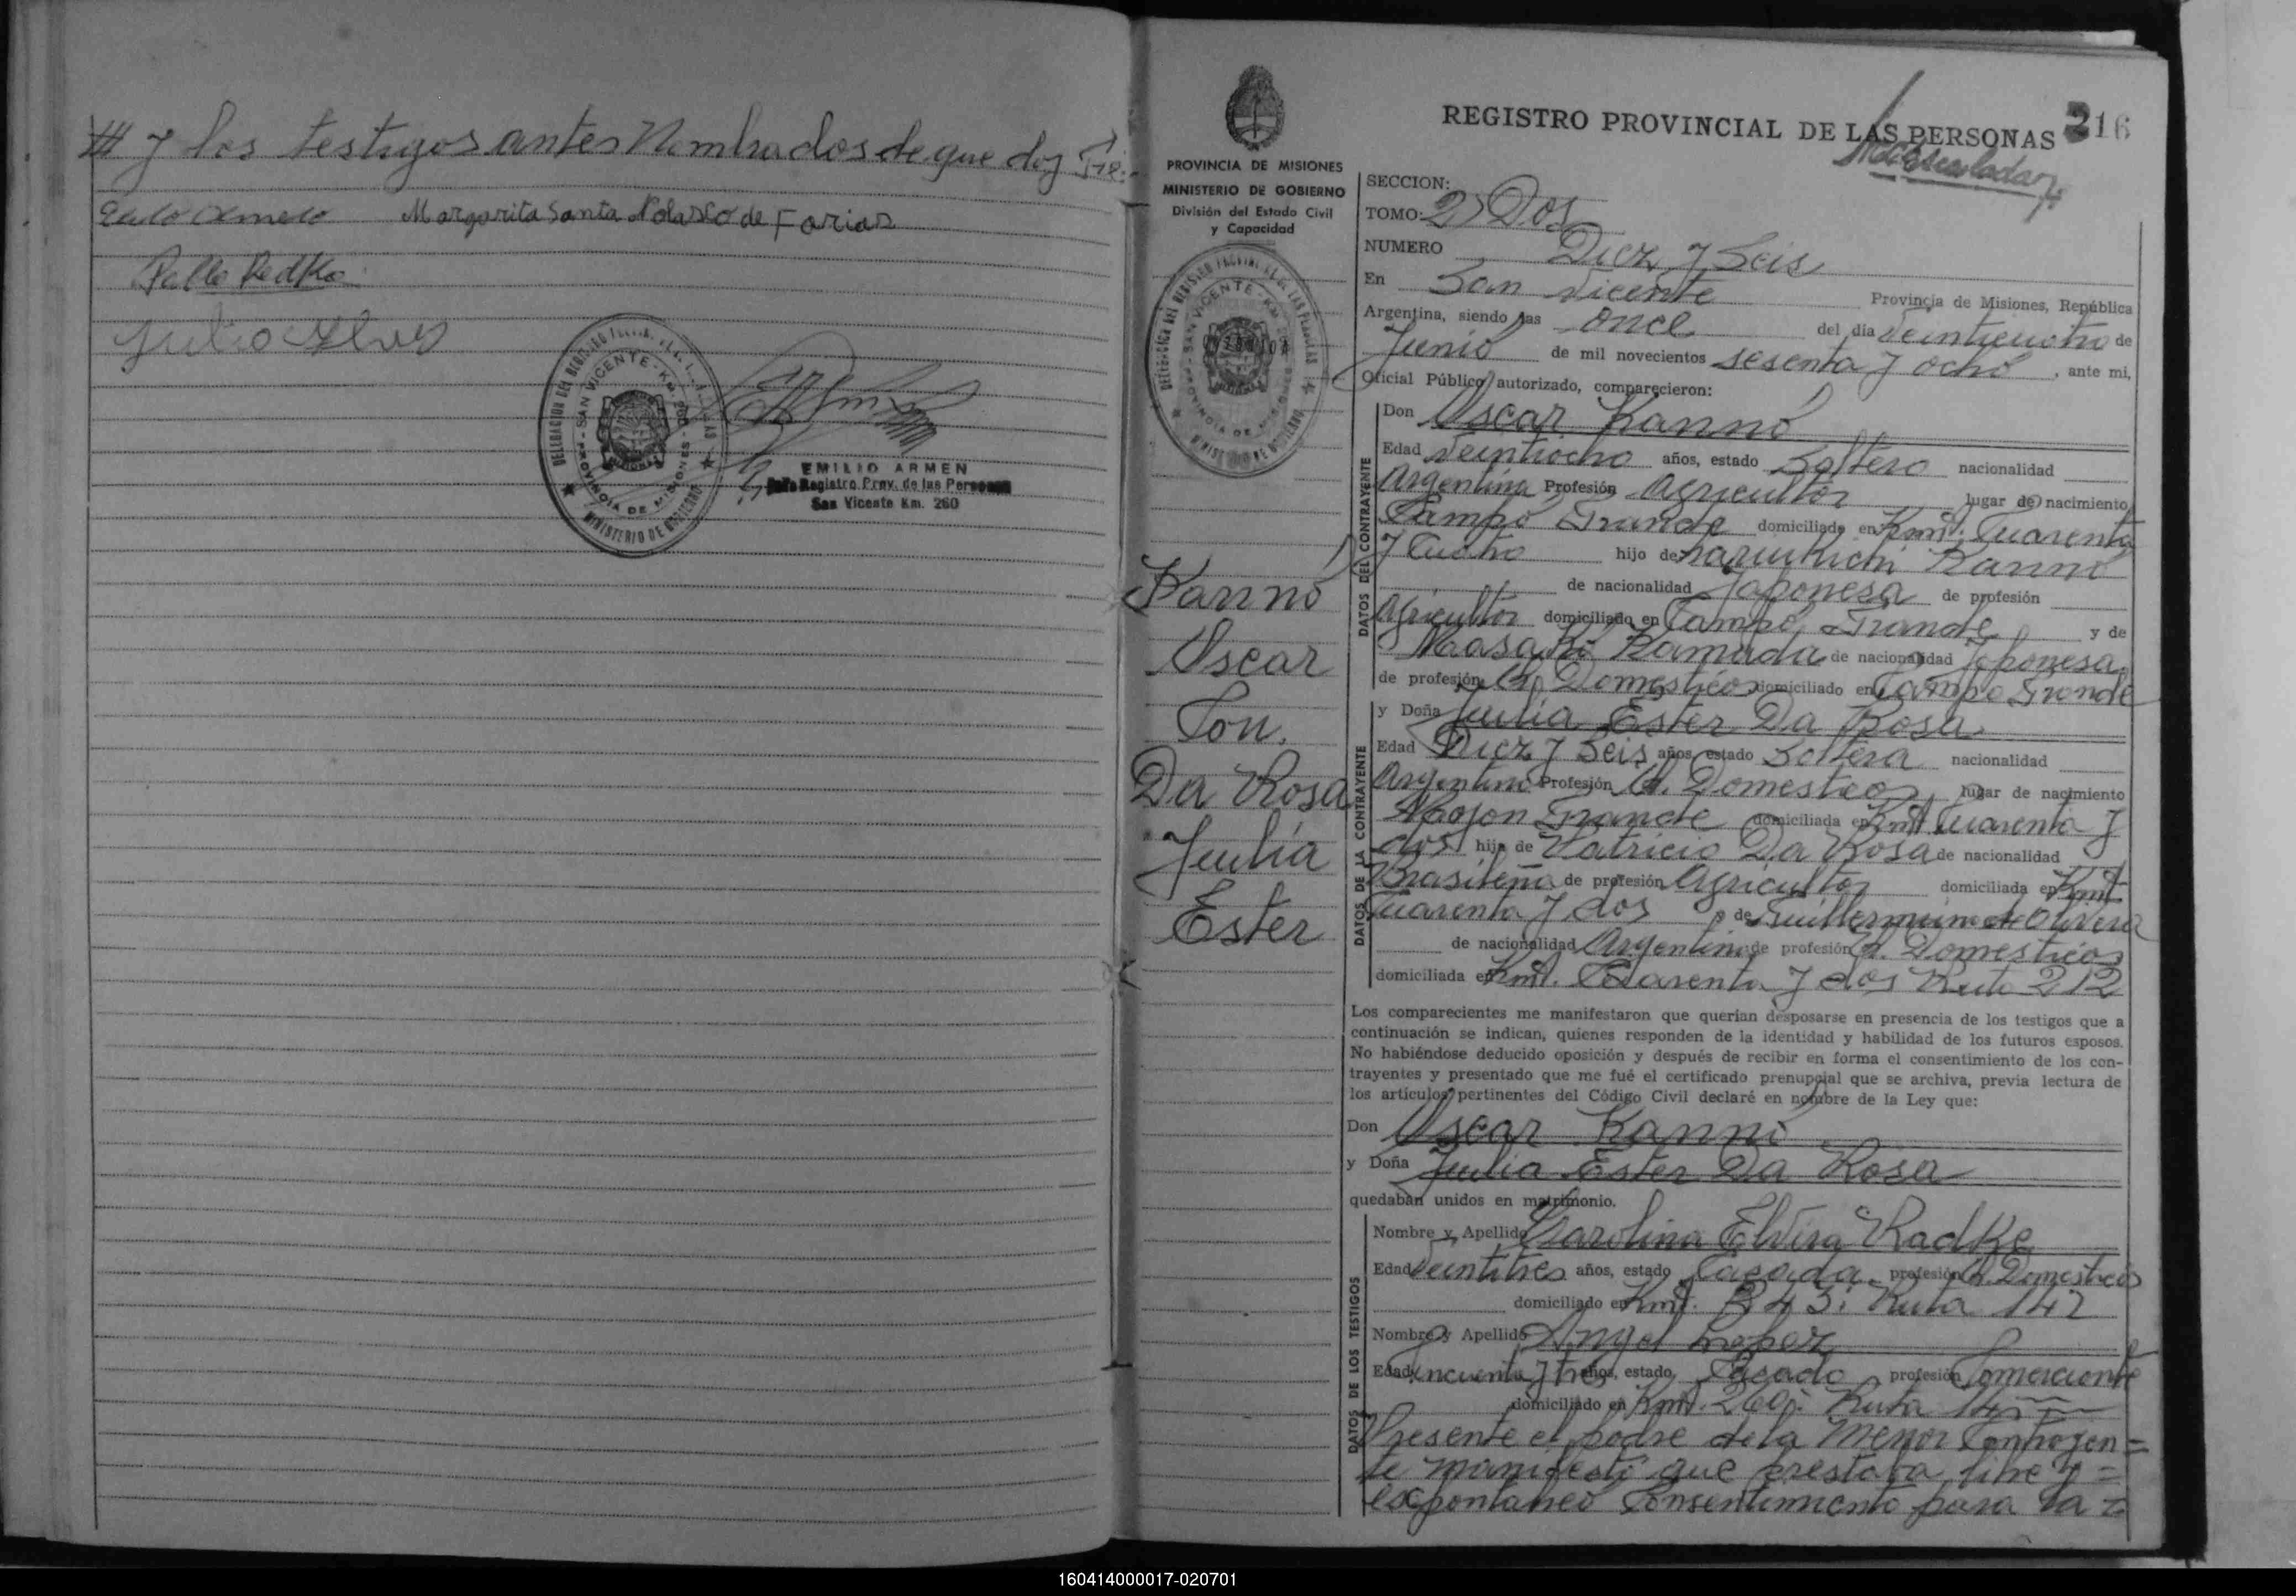 y los testigos antes Nombrados de que doy Fé.
Margarita Santa Nolasco de Farias
Pablo Redko
Julio Alves
DELEGACION DEL REGISTRO PROVINCIAL DE LAS PERSONAS
SAN VICENTE - KM. 260 - PROVINCIA DE MISIONES
MINISTERIO DE GOBIERNO
EMILIO ARMEN
Jefe Registro Prov. de las Personas
San Vicente Km. 260
PROVINCIA DE MISIONES
MINISTERIO DE GOBIERNO
División del Estado Civil
y Capacidad
DELEGACION DEL REGISTRO PROVINCIAL DE LAS PERSONAS
SAN VICENTE - KM. 260 - PROVINCIA DE MISIONES
MINISTERIO DE GOBIERNO
Kannó
Oscar
Con.
Da Rosa
Julia
Ester
REGISTRO PROVINCIAL DE LAS PERSONAS 216
SECCION:
TOMO: 2) Dos
NUMERO Diez y Seis
En San Vicente Provincia de Misiones, República
Argentina, siendo las once del día Veinticuatro de
Junio de mil novecientos sesenta y ocho, ante mi,
Oficial Público autorizado, comparecieron:
DATOS DEL CONTRAYENTE
Don Oscar Kannó
Edad Veintiocho años, estado Soltero nacionalidad
Argentina Profesión Agricultor lugar de nacimiento
Campo Grande domiciliado en Kmt. Cuarenta
y Cuatro hijo de Kannó
de nacionalidad Japonesa de profesión
Agricultor domiciliado en Campo Grande y de
Masaki Kamada de nacionalidad Japonesa
de profesión Q. Domésticos domiciliado en Campo Grande
DATOS DE LA CONTRAYENTE
y Doña Julia Ester Da Rosa
Edad Diez y Seis años, estado Soltera nacionalidad
Argentina Profesión Q. Domesticos lugar de nacimiento
Mojon Grande domiciliada en Kmt Cuarenta y
dos hija de Patricio Da Rosa de nacionalidad
Brasileña de profesión Agricultor domiciliada en Kmt
Cuarenta y dos y de Guillermina de Olivera
de nacionalidad Argentina de profesión Q. Domesticos
domiciliada en Kmt. Cuarenta y dos Ruta 212
Los comparecientes me manifestaron que querían desposarse en presencia de los testigos que a
continuación se indican, quienes responden de la identidad y habilidad de los futuros esposos.
No habiéndose deducido oposición y después de recibir en forma el consentimiento de los con-
trayentes y presentado que me fué el certificado prenupcial que se archiva, previa lectura de
los artículos pertinentes del Código Civil declaré en nombre de la Ley que:
Don Oscar Kannó
y Doña Julia Ester Da Rosa
quedaban unidos en matrimonio.
DATOS DE LOS TESTIGOS
Nombre y Apellido Carolina Elvira Radke
Edad Veintitres años, estado Casada profesión Q. Domesticos
domiciliado en Kmt. 243. Ruta 142
Nombre y Apellido Angel Lopez
Edad Cincuenta y tres años, estado Casado profesión Comerciante
domiciliado en Kmt. 260. Ruta 14
Presente el padre de la Menor Contrayen=
te manifestó que prestaba libre y =
espontaneo Consentimiento para la =
160414000017-020701